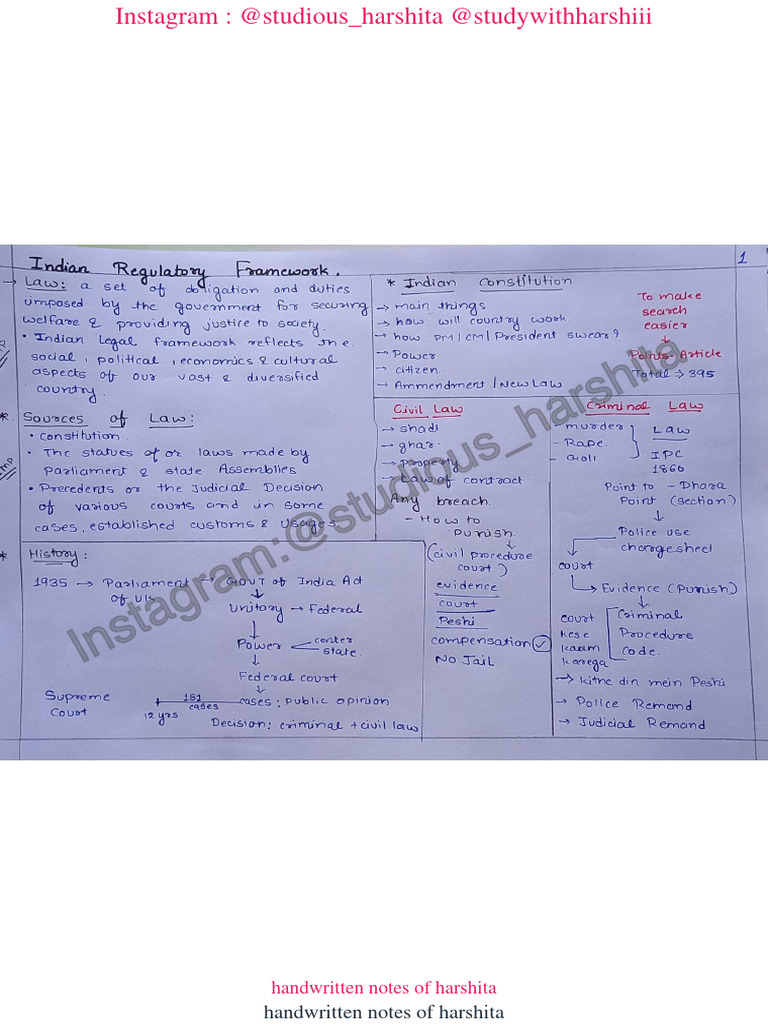 Instagram : @studious_harshita @studywithharshiii
1
Indian Regulatory Framework.
→ Law: a set of obligation and duties
imposed by the government for securing
welfare & providing justice to society.
• Indian Legal framework reflects the
social, political, economics & cultural
aspects of our vast & diversified
country.
* Sources of Law:
• Constitution.
• The statues of or laws made by
Parliament & state Assemblies
• Precedents or the Judicial Decision
of various courts and in some
cases, established customs & Usages
* History:
1935 → Parliament → Govt of India Act
of UK
↓
Unitory → Federal
↓
Power
center
state.
↓
Federal court
↓
Supreme
Court
151
cases
12 yrs
cases: public opinion
Decision: criminal + civil law
* Indian Constitution
→ main things
→ how will country work
→ how PM/CM/President swear?
→ Power
→ citizen
→ Ammendment / New Law
To make
search
easier
↓
Points - Article
Total → 395
Civil Law
→ shadi
→ ghar
→ Property
→ Law of contract
Any breach.
- How to
punish.
↓
(civil procedure
court)
evidence
court
Peshi
compensation ✓
No Jail
Criminal Law
- murder
- Rape
- Goli
Law
IPC
1866
Point to - Dhara
Point (section)
↓
Police use
chargesheet
court
↳ Evidence (Punish)
↓
court
kese
kaam
karega
Criminal
Procedure
code.
→ kitne din mein Peshi
→ Police Remand
→ Judicial Remand
Instagram:@studious_harshita
handwritten notes of harshita
handwritten notes of harshita